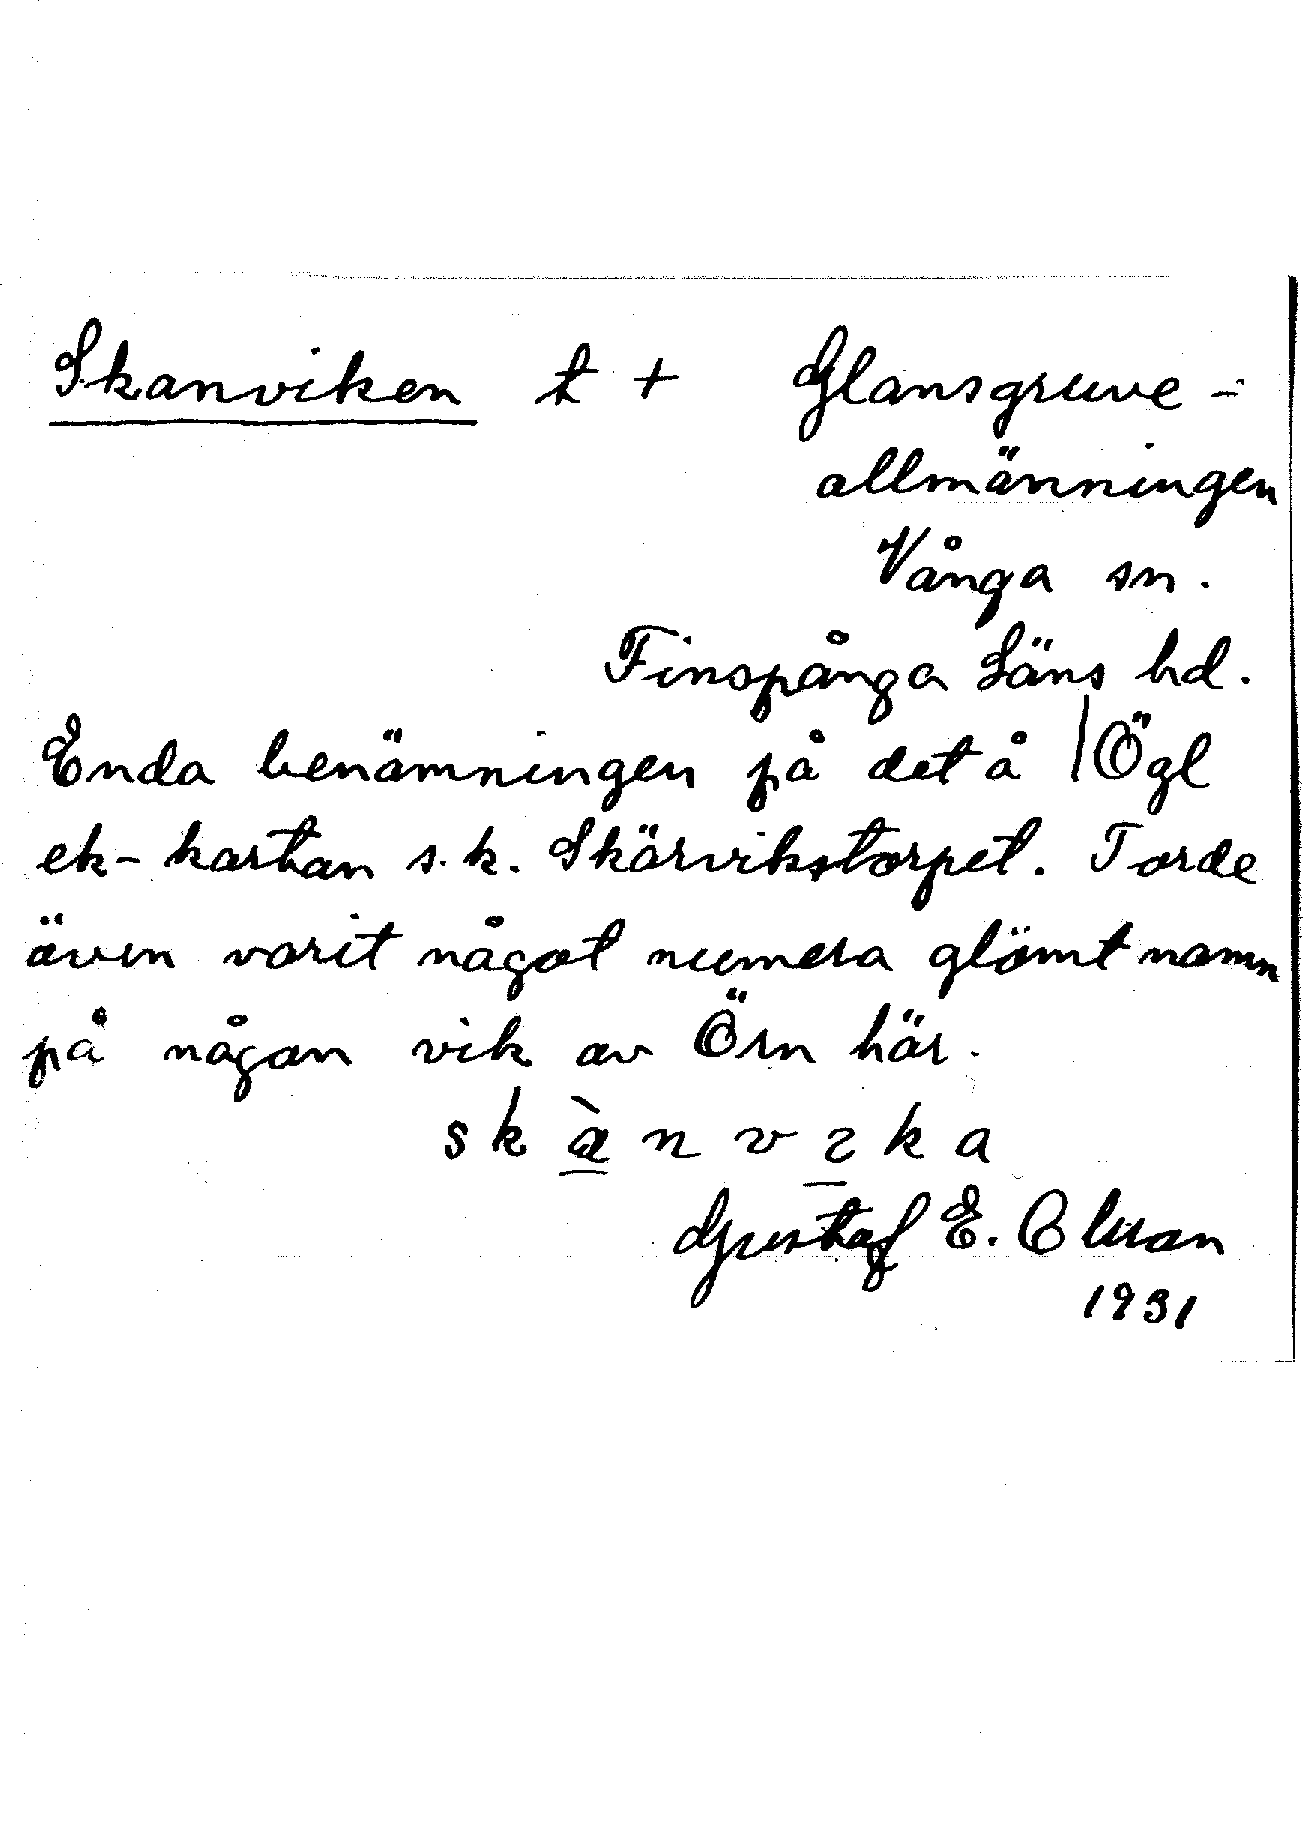 Skanviken t + Glansgruve-
allmänningen
Vånga sn.
Finspånga Läns hd.
Enda benämningen på det å | Ögl
ek-kartan s.k. Skärvikstorpet. Torde
även varit något numera glömt namn
på någon vik av Örn här.
skànvika
Gustaf E.
1931